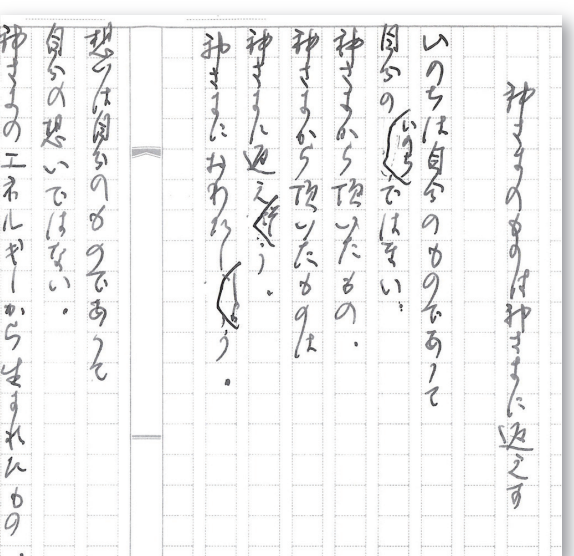 神さまのものは神さまに返えす
いのちは自分のものであって
自分のいのちではない。
神さまから頂いたもの。
神さまから頂いたものは
神さまに返えそう。
神さまにおわたししよう。
想いは自分のものであって
自分の想いではない。
神さまのエネルギーから生まれたもの。